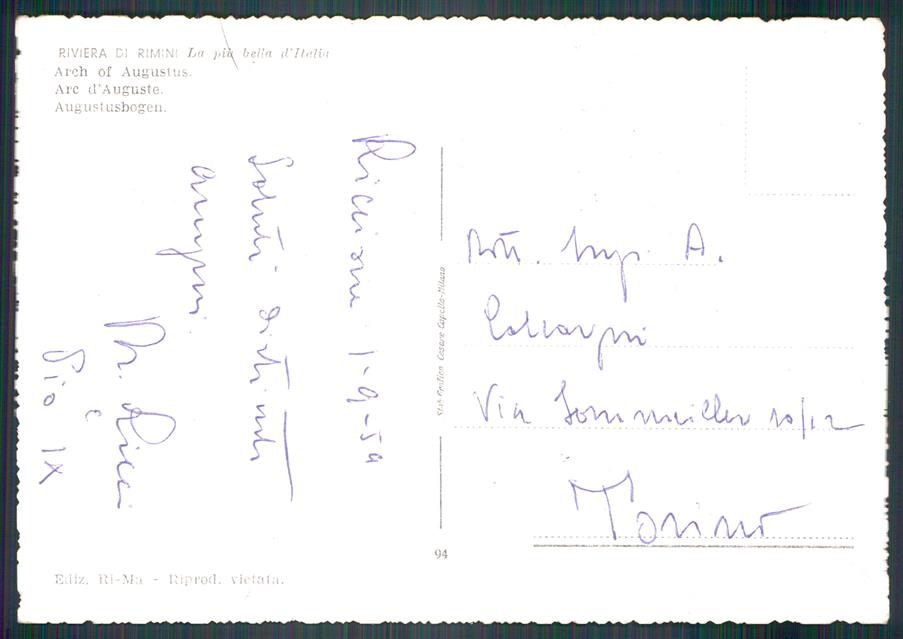 RIVIERA DI RIMINI La più bella d'Italia
Arch of Augustus.
Arc d'Auguste.
Augustusbogen.
Riccione 1-9-59
Saluti distinti
auguri.
Dr. Ricci
Pio IX
Stab. Grafico Cesare Capello-Milano
Dott. Ing. A.
Via Sommeiller 10/12
Torino
94
Ediz. Ri-Ma - Riprod. vietata.